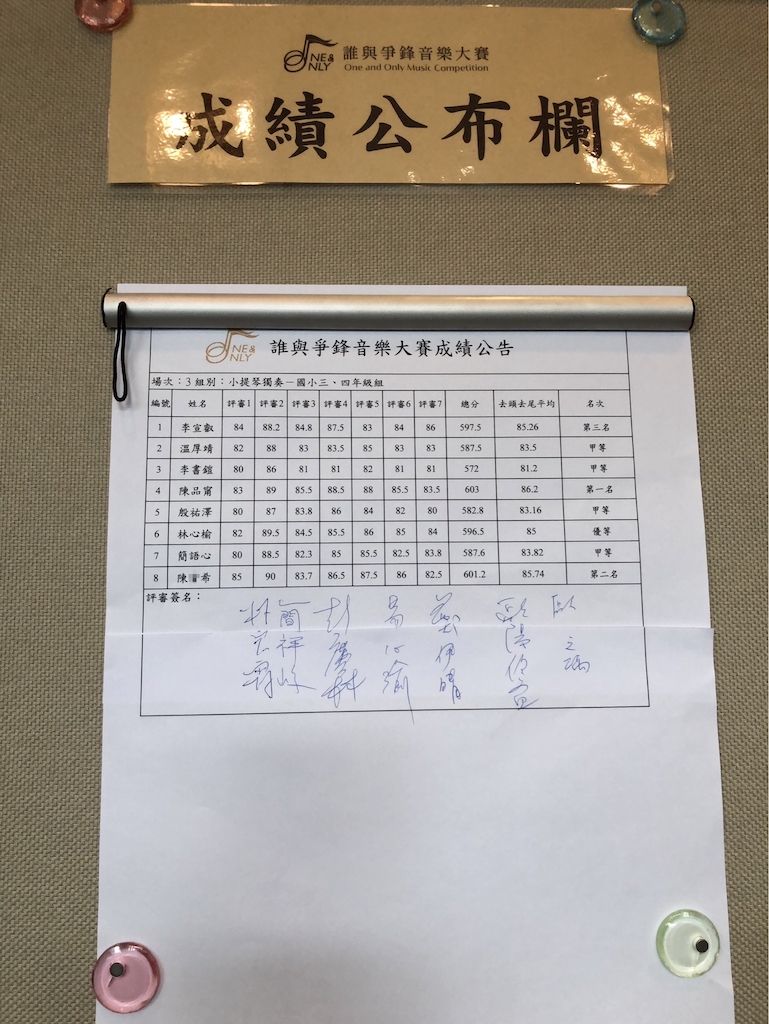 NE&
NLY
誰與爭鋒音樂大賽
One and Only Music Competition
成績公布欄
NE&
NLY
誰與爭鋒音樂大賽成績公告
場次：3 組別：小提琴獨奏－國小三、四年級組
編號 姓名 評審1 評審2 評審3 評審4 評審5 評審6 評審7 總分 去頭去尾平均 名次
1 李宣叡 84 88.2 84.8 87.5 83 84 86 597.5 85.26 第三名
2 溫厚靖 82 88 83 83.5 85 83 83 587.5 83.5 甲等
3 李書鎧 80 86 81 81 82 81 81 572 81.2 甲等
4 陳品甯 83 89 85.5 88.5 88 85.5 83.5 603 86.2 第一名
5 殷祐澤 80 87 83.8 86 84 82 80 582.8 83.16 甲等
6 林心榆 82 89.5 84.5 85.5 86 85 84 596.5 85 優等
7 簡語心 80 88.5 82.3 85 85.5 82.5 83.8 587.6 83.82 甲等
8 陳 希 85 90 83.7 86.5 87.5 86 82.5 601.2 85.74 第二名
評審簽名：